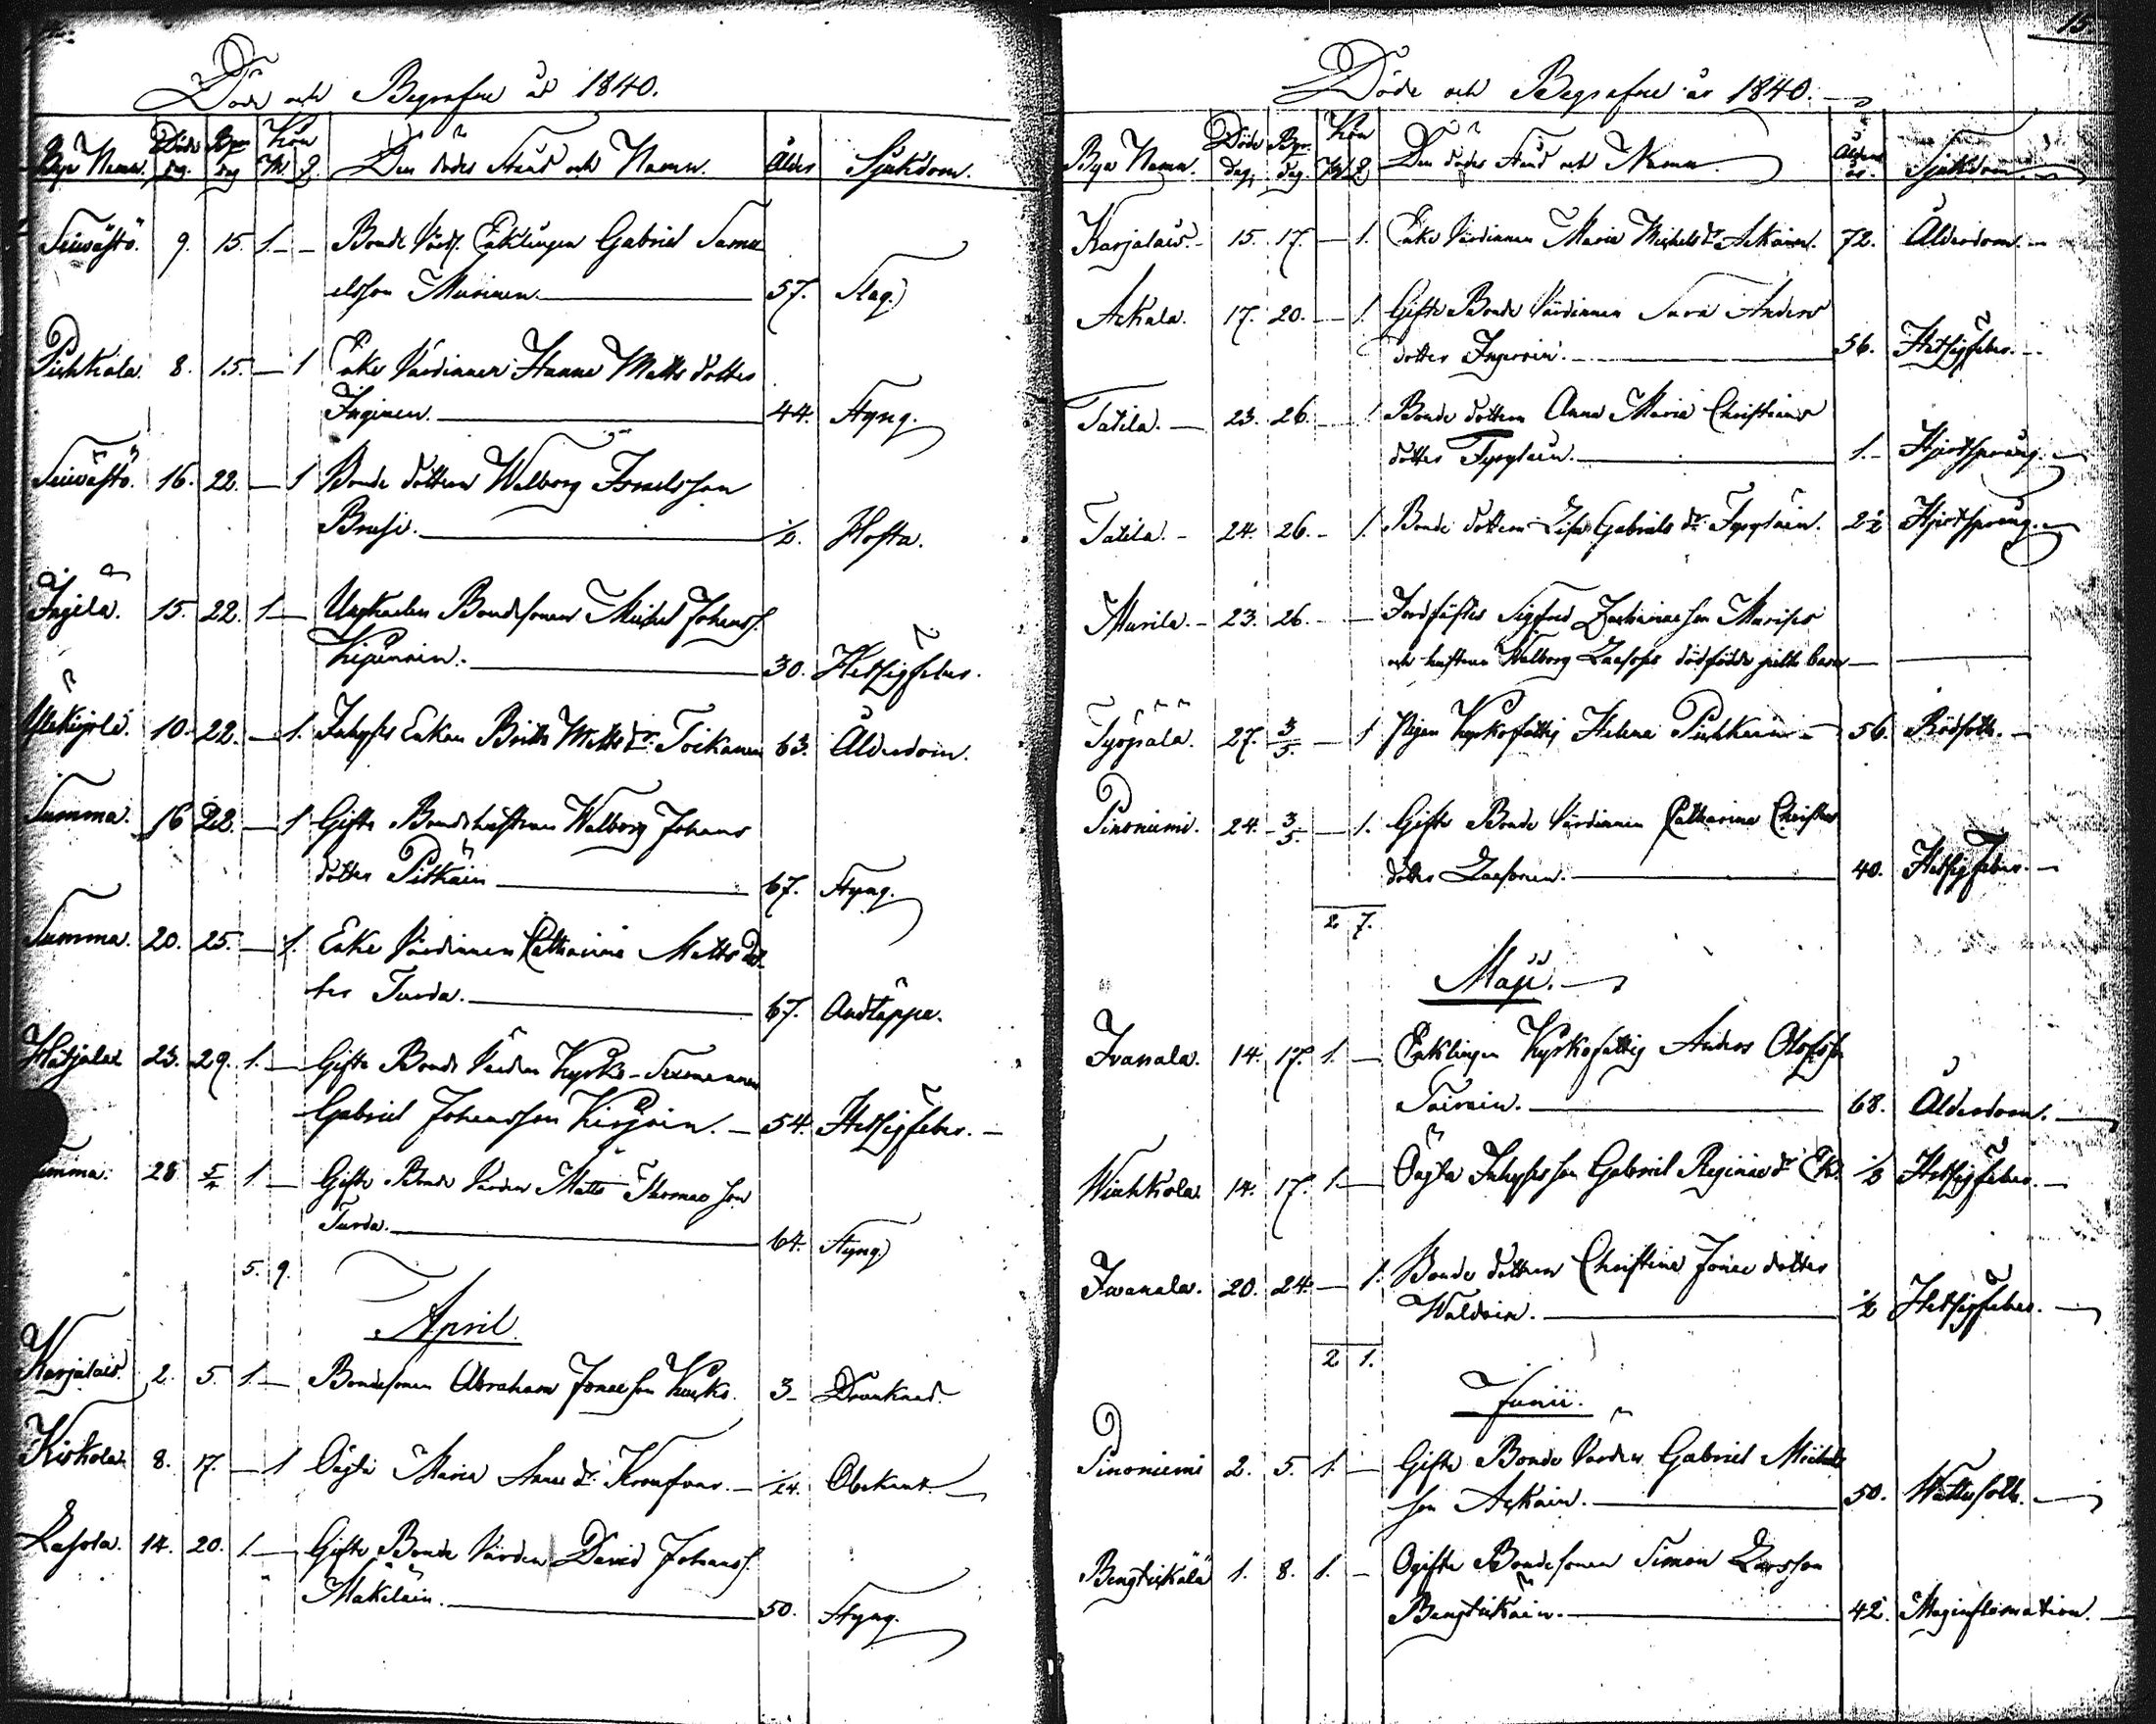 Döde och Begrafne år 1840.
Bya Namn. Döds dag. Begr. dag Kön M. Q. Den dödes Stånd och Namn. Ålder Sjukdom.
Seiwästö. 9. 15. 1. — Bonde Gabriel Samu
elsson Musinen. 57. Slag.
Pihkala. 8. 15. — 1 Enke Värdinnan Hanna Matts dotter
Inginen. 44. Styng.
Seiwästö. 16. 22. — 1 Bonde dottren Walborg Israelsson
Brusi. 1/2. Hosta.
Ingila. 15. 22. 1. — Ungkarlen Bondesonen Michel Johanss.
30. Hetsigfeber.
10. 22. — 1. Inhyses Enkan Brita Matts dr. Toikanen 63. Ålderdom.
Summa. 16 22. — 1 Gifta Bondehustrun Walborg Johans
dotter Pitkäin 67. Styng.
Summa. 20. 25. — 1. Enke Värdinnan Catharina Matts dot
ter Turda. 67. Andtäppa.
Hatjala. 23. 29. 1. — Gifte Bonde Värden Kyrko-Sexmannen
Gabriel Johansson 54. Hetsigfeber.
28 5/4 1 — Gifte Bonde Värden Matts Thomas son
Turda. 64. Styng.
5. 9.
April.
Karjalais. 2. 5. 1. — Bondesonen Abraham Jonae son Kurki. 3 — Drunknad.
Kirkola. 8. 17. — 1 Oägta Maria Annae dr. 1/24. Obekant.
Lasola. 14. 20. 1. — Gifte Bonde Värden David Johanss.
Mäkeläin. 50. Styng.
15.
Döde och Begrafne år 1840.
Bya Namn. Döds dag. Begr. dag. Kön M. Q. Den dödes Stånd och Namn. Ålder år. Sjukdom.
Karjalais. 15. 17. — 1. Enke Värdinnan Maria Michels dr. Äckäin. 72. Ålderdom.
Ackala. 17. 20. — 1. Gifta Bonde Värdinnan Sara Anders
dotter 56. Hetsigfeber.
Tatila. 23. 26. — 1. Bonde dottren Anna Maria Christians
dotter 1. Hjertsprång.
Tatila. 24. 26. — 1. Bonde dottren Lisa Gabriels dr. 2 1/2 Hjertsprång.
Murila. 23. 26. — Jordfästes Sigfred Zachariae son
och hustrun Walborg dödfödde pilte barn
Työpälä. 27. 3/5. — 1 Pigan Kyrkofattig Helena Pihkain 56. Rödsoth.
Pinoniemi. 24. 3/5. — 1. Gifta Bonde Värdinnan Catharina Christers
dotter 40. Hetsigfeber.
2 7.
Maji.
Ivanala. 14. 17. 1. — Enklingen Kyrkofattig Anders Olofsson
Toivain. 68. Ålderdom.
Wiahkola. 14. 17. 1. — Oägta Inhyses son Gabriel Reginae dr. 1/2 Hetsigfeber.
Iwanala. 20. 24. — 1. Bonde dottren Christina Jonae dotter
Waldoin. 1/2 Hetsigfeber.
2 1.
Junii.
Pinoniemi 2. 5. 1. — Gifte Bonde Värden Gabriel Michels
son Äckäin. 50. Wattusoth.
Bengtickälä 1. 8. 1. — Ogifte Bondesonen Simon Larsson
Bengtikäin. 42. Maginflamation.